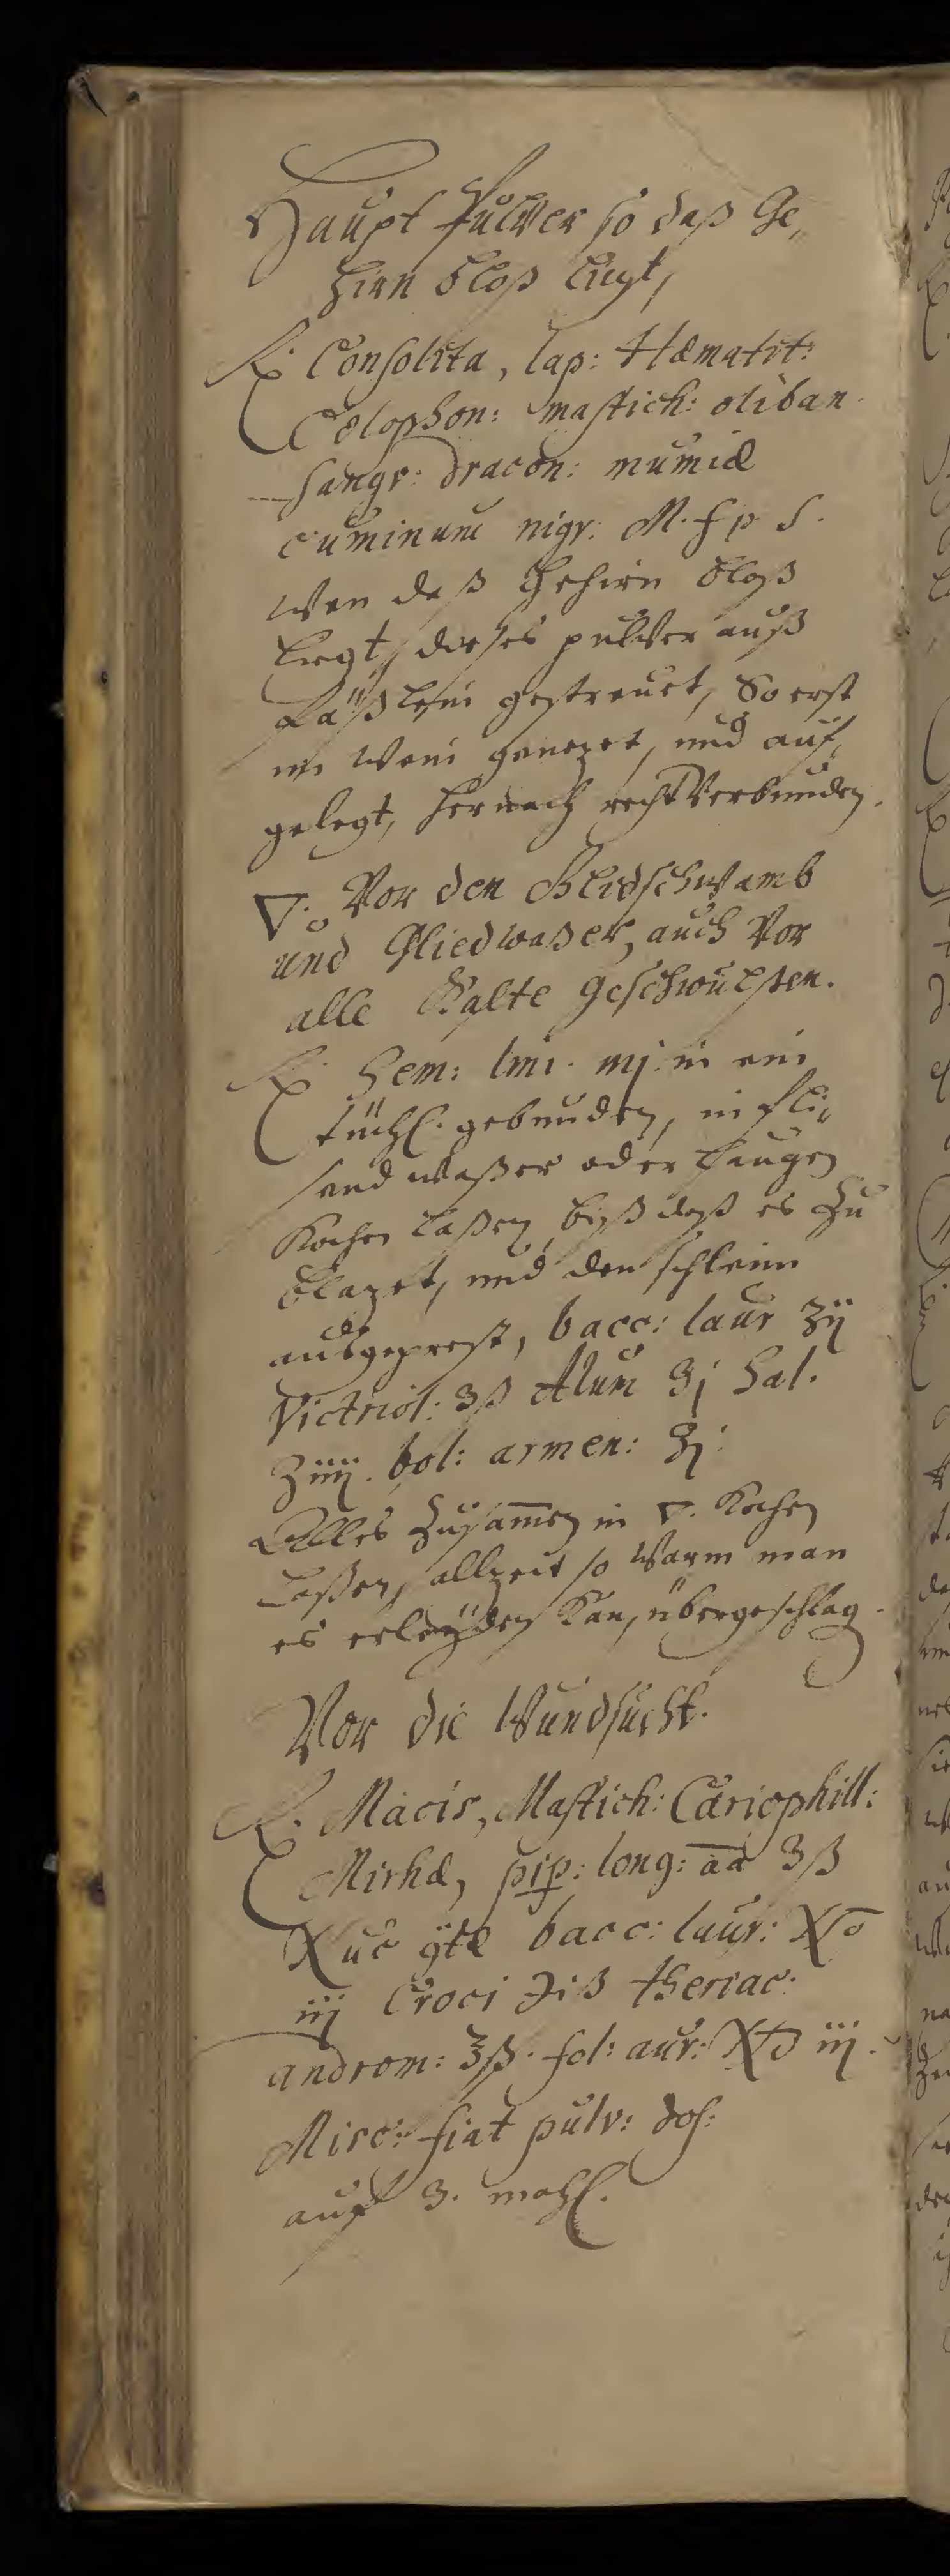 Haupt Pulver so daß Ge„
hirn bloß ligt,
℞. Consolita, lap: Hæmatit:
Colophon: mastich: oliban.
sangv: dracon: mumiæ
cuminum nigr: M. f p S.
Wen daß Gehirn bloß
liegt, dieses pulver auß
gestreuet, So erst
in Wein genezet, und auf„
gelegt, hernach recht Verbunden.
▽. Vor den Glidschwamb
und Gliedwaßer, auch Vor
alle Kalte geschwulsten.
℞. Sem: lini. mj. in ein
tüchl. gebunden, in fli„
send waßer oder laugen
Kochen laßen, biß daß es Zu
blazet, und den schleim
außgeprest, bacc: laur ʒij
Victriol: ʒß Alum ʒj Sal.
ʒiiij. bol: armen: ʒj.
Alles Zusam̄en in ▽. Kochen
laßen, allzeit so Warm man
es erleyden Kan, übergeschlag.
Vor die Wundsucht.
℞. Macis, Mastich: Cariophill:
Mirhæ, pip: long: āā ʒß
Nuc bacc: laur: No
iij Croci ℈iß theriac:
androm: ʒß. fol: aur: No iij.
Misc: fiat pulv: dos:
auf 3. mahl.